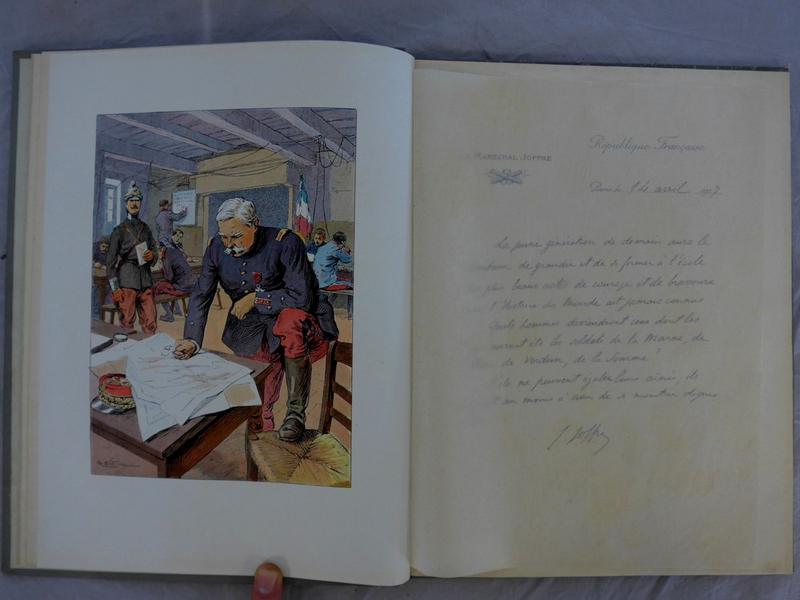 MARÉCHAL JOFFRE
République Française
Paris le 8 de avril 1917
La jeune génération de demain aura le
de grandir et de se former à l'école
plus beaux actes de courage et de bravoure
l'Histoire du Monde ait jamais connus
Quels hommes deviendront ceux dont les
auront été les soldats de la Marne, de
de Verdun, de la Somme?
ils ne peuvent égaler leurs aînés, ils
au moins à cœur de se montrer dignes
J. Joffre